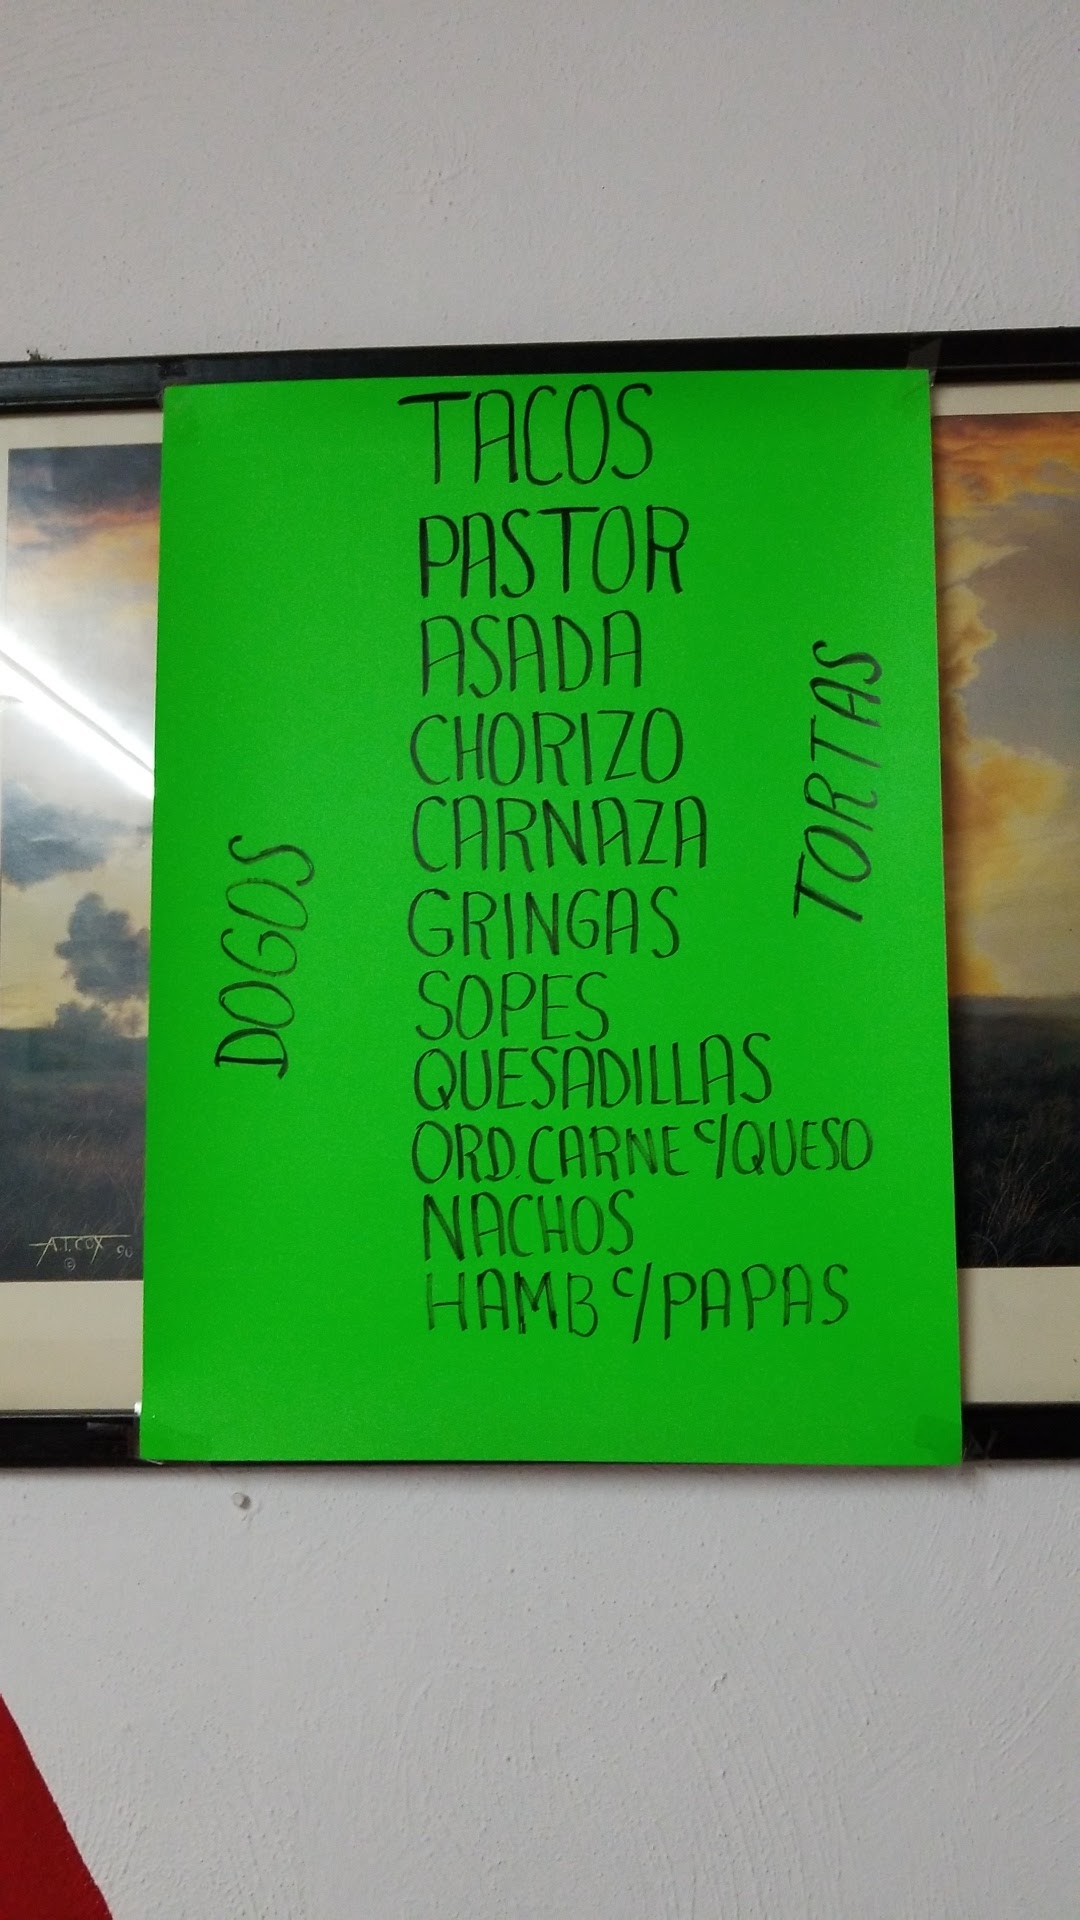 TACOS
PASTOR
ASADA
CHORIZO
CARNAZA
GRINGAS
SOPES
QUESADILLAS
ORD. CARNE C/QUESO
NACHOS
HAMB C/PAPAS
DOGOS
TORTAS
A.T. COX 90
©